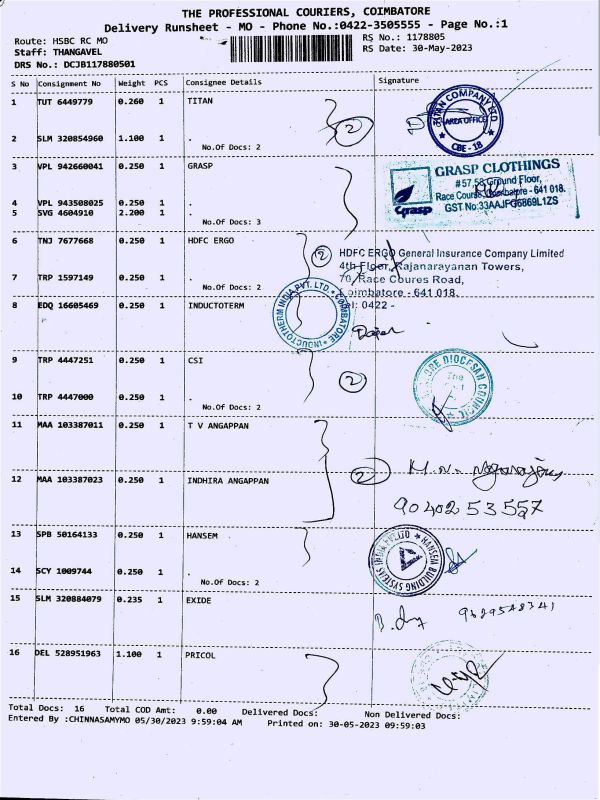 THE PROFESSIONAL COURIERS, COIMBATORE
Delivery Runsheet - MO - Phone No.:0422-3505555 - Page No.:1
Route: HSBC RC MO
RS No.: 1178805
Staff: THANGAVEL
RS Date: 30-May-2023
DRS No.: DCJB117880501
S No Consignment No Weight PCS Consignee Details Signature
1 TUT 6449779 0.260 1 TITAN
TITAN COMPANY LTD
AREA OFFICE
CBE - 18
2
2 SLM 320854960 1.100 1 .
No.Of Docs: 2
3 VPL 942660041 0.250 1 GRASP
GRASP CLOTHINGS
#57,58 Ground Floor,
Race Course, Coimbatore - 641 018.
Grasp
4 VPL 943508025 0.250 1
5 SVG 4604910 2.200 1 .
No.Of Docs: 3
6 TNJ 7677668 0.250 1 HDFC ERGO
2
HDFC ERGO General Insurance Company Limited
4th Floor, Rajanarayanan Towers,
70, Race Coures Road,
Coimbatore - 641 018.
Tel: 0422 -
7 TRP 1597149 0.250 1 .
No.Of Docs: 2
8 EDQ 16605469 0.250 1 INDUCTOTERM
INDUCTOTHERM INDIA PVT. LTD * COIMBATORE *
9 TRP 4447251 0.250 1 CSI
2
DIOCESAN COUNCIL
The
10 TRP 4447000 0.250 1 .
No.Of Docs: 2
11 MAA 103387011 0.250 1 T V ANGAPPAN
2
12 MAA 103387023 0.250 1 INDHIRA ANGAPPAN
90402 53557
13 SPB 50164133 0.250 1 HANSEM
HANSEM BUILDING SYSTEMS INDIA PVT LTD
14 SCY 1009744 0.250 1 .
No.Of Docs: 2
15 SLM 320884079 0.235 1 EXIDE
9629548341
16 DEL 528951963 1.100 1 PRICOL
Total Docs: 16 Total COD Amt: 0.00 Delivered Docs: Non Delivered Docs:
Entered By :CHINNASAMYMO 05/30/2023 9:59:04 AM Printed on: 30-05-2023 09:59:03